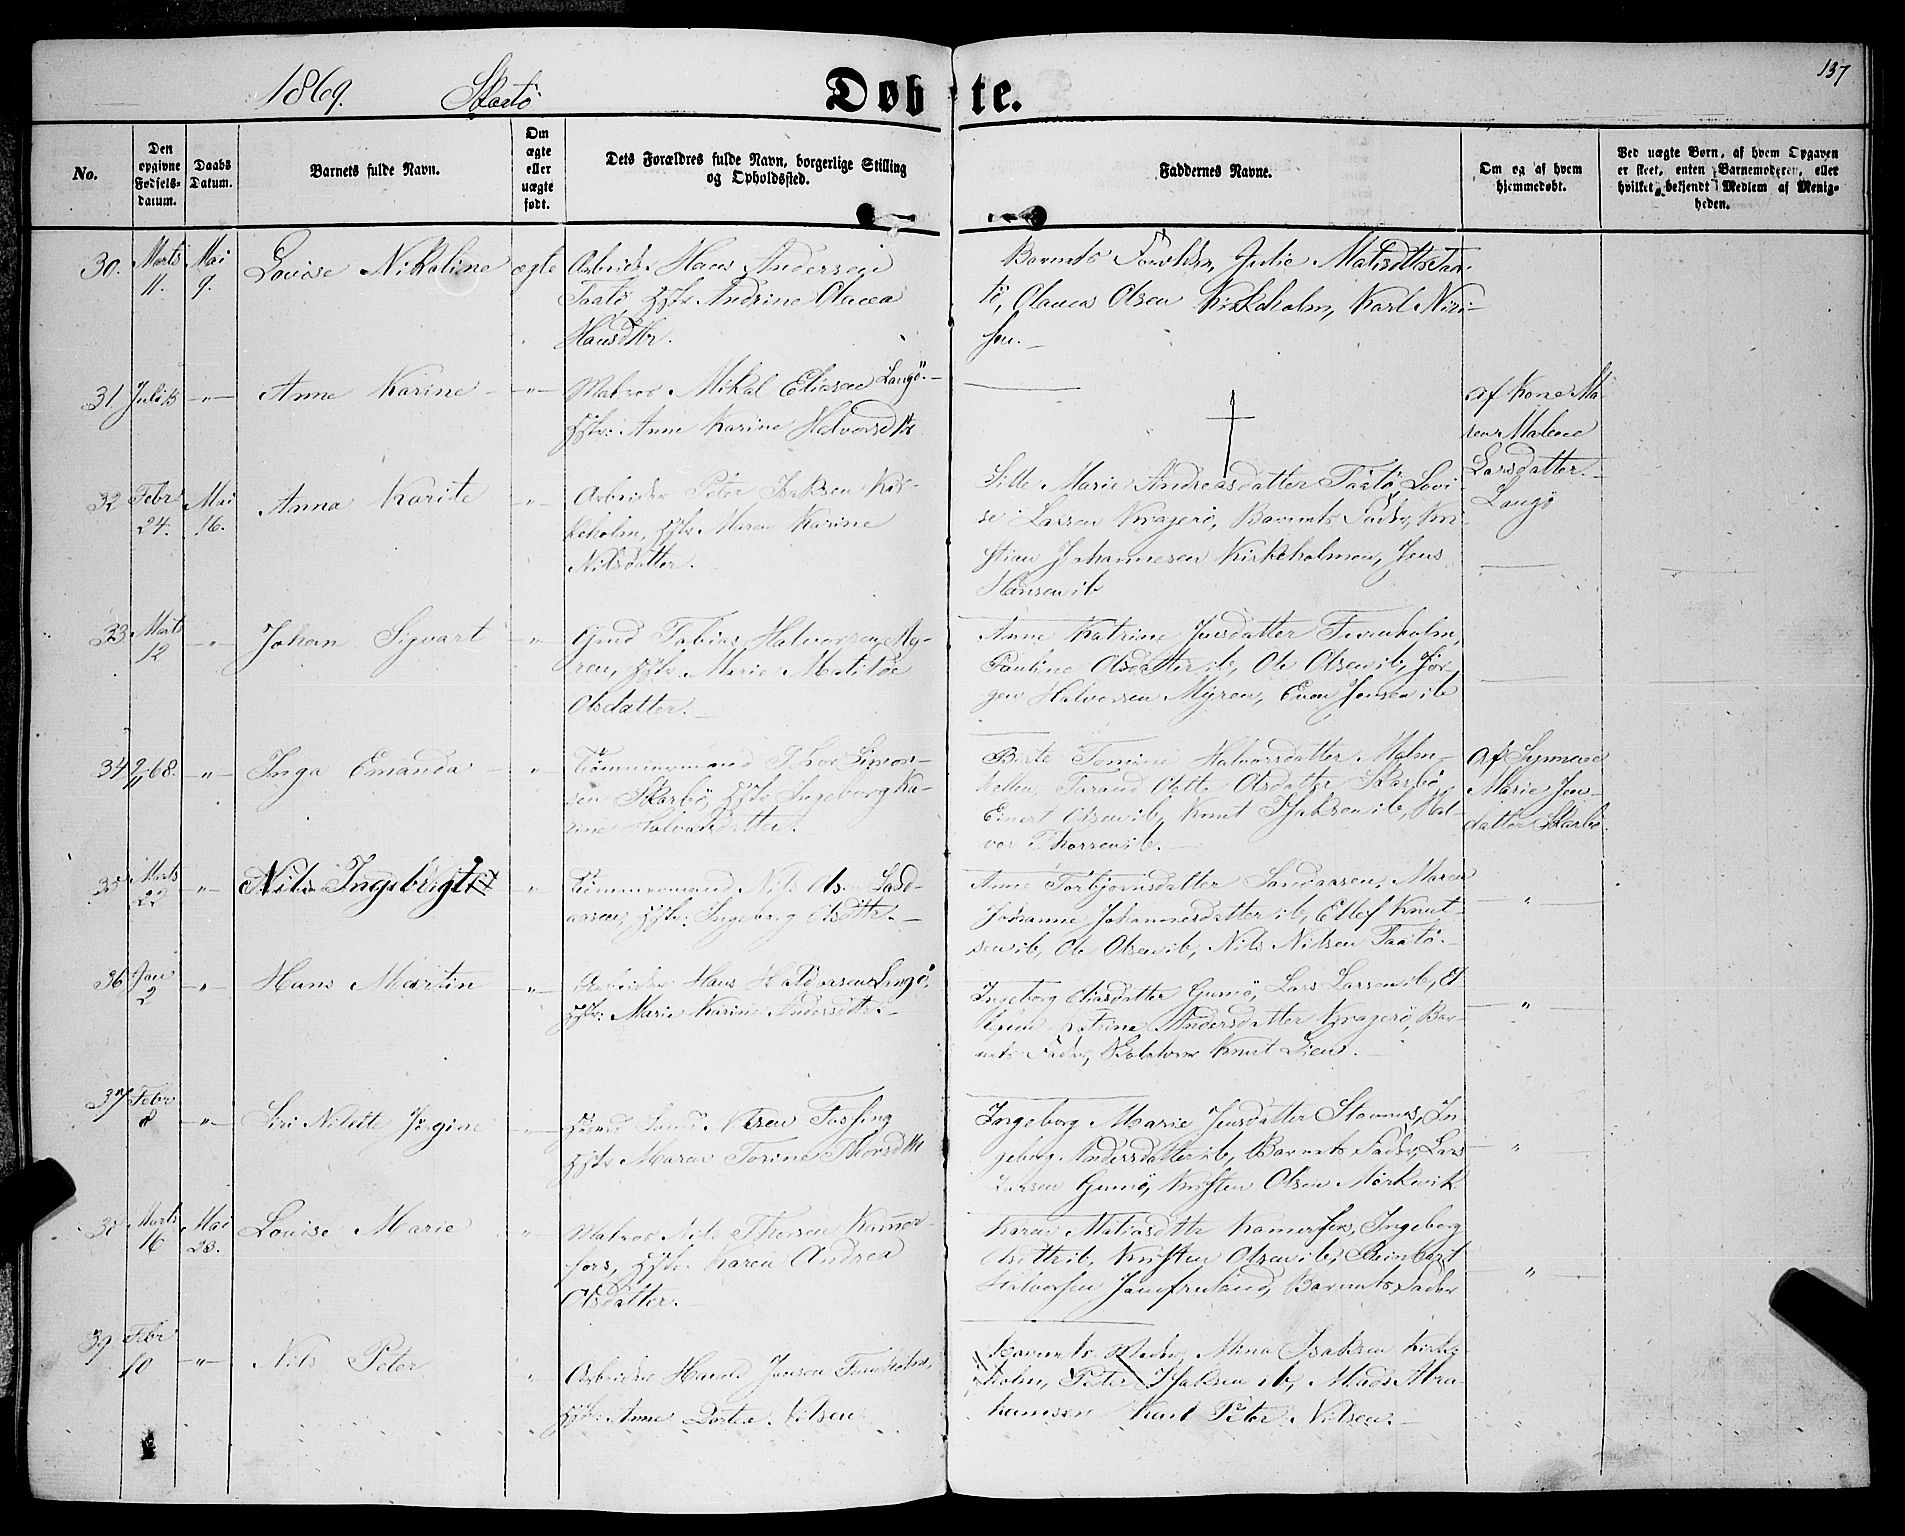 137
1869. Skaatö
Døbte.
No.
Den opgivne Fødsels-datum.
Daabs Datum.
Barnets fulde Navn.
Om ægte eller uægte født.
Dets Forældres fulde Navn, borgerlige Stilling
og Opholdssted.
Faddernes Navne.
Om og af hvem
hjemmedøbt.
Ved uægte Børn, af hvem Opgaven
er skeet, enten Barnemoderen, eller
hvilket bekjendt Medlem af Menig-
heden.
30. Marts 11. Mai 9. Lovise Nikoline ægte
Arbeider Hans Andersen
Taatö, Hstr Andrine Olacea
Hansdtr.
Barnets Forældre, Julie Matisdtr Taa-
tö, Olaves Olsen Kirkeholm, Karl Niri-
sen.
31 Juli 15 -"- Anne Karine -"-
Matros Mikal Eliasen Langö.
Hstr: Anne Karine Halvorsdtr
af Kone Ma-
ren Malene
Larsdatter
Langö
32 Febr 24. Mai 16. Anna Karite "
Arbeider Peter Isaksen Kir-
keholm, Hstr Maren Karine
Nilsdatter.
Sille Marie Andreasdatter Taatö, Lovi-
se Larsen Kragerö, Barnets Fader, Kri-
stian Johannesen Kirkeholmen, Jens
Hansen ib
33 Marts 12 " Johan Sigvart "
Grd Tobias Halvorsen My-
ren, Hstr. Marie Matilde
Olsdatter.
Anne Katrine Jensdatter Furuholm,
Pauline Olsdatter ib, Ole Olsen ib, Jör-
gen Halvorsen Myren, Even Jensen ib
34 9/11 68. " Inga Emanda "
Tömmermand Thor Simon-
sen Skarbö, Hstr Ingeborg Ka-
rine Halvorsdatter.
Berte Tomine Halvorsdatter Malm-
hellen, Turand Olette Olsdatter Skarbö,
Einert Olsen ib, Knut Isaksen ib, Hal-
vor Thorsen ib.
af Synneve
Marie Jens-
datter Skarbö.
35 Marts 22 " Nils Ingebrigt "
Tömmermand Nils Olsen Sand-
aasen, Hstr: Ingeborg Olsdttr.
Anne Torbjörnsdatter Sandaasen, Maren
Johanne Johannesdatter ib, Ellef Knut-
sen ib, Ole Olsen ib, Nils Nilsen Taatö.
"
36 Jan 2 " Hans Martin "
Arbeider Hans Haldorsen Langö,
Hstr: Marie Karine Andersdttr.
Ingeborg Eliasdatter Gumö, Lars Larsen ib,
Katrine Andersdatter Kragerö, Bar-
nets Fader, Knut Lien.
"
37 Febr 8 -"- Siri Nilette Jörgine
Olsen Fossing
Hstr Maren Torine Thorsdttr
Ingeborg Marie Jensdatter Stavnes, In-
geborg Andersdatter ib, Barnets Fader, Lars
Larsen Gumö, Kristen Olsen Mörkevik
"
38 Marts 16 Mai 23. Louise Marie "
Matros Nils Thorsen Kammer-
fors, Hstr. Karen Andrea
Olsdatter.
Karen Matiasdttr Kamerfos, Ingeborg
Olsdttr ib, Kristen Olsen ib, Reinbert
Halvorsen Jomfruland, Barnets Fader
"
39 Febr 10 -"- Nils Peter "
Arbeider Harald Jensen Furuholm,
Hstr: Anne Dortea Nilsen
Barnets Moder, Mina Isaksen Kirke-
holm, Peter Isaksen ib, Mads Abra-
hamsen Knut Peter Nilsen.